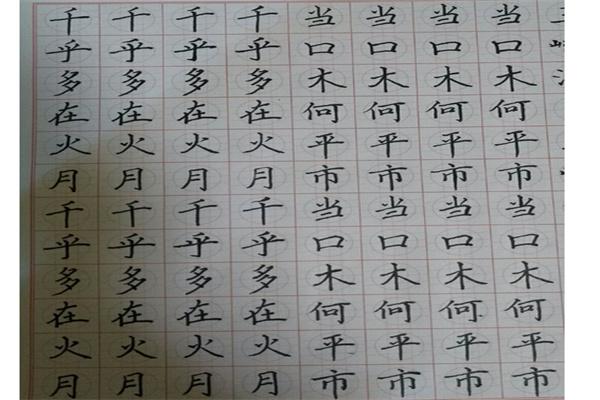 千千千千当当当当
乎乎乎乎口口口口
多多多多木木木木
在在在在何何何何
火火火火平平平平
月月月月市市市市
千千千千当当当当
乎乎乎乎口口口口
多多多多木木木木
在在在在何何何何
火火火火平平平平
月月月月市市市市